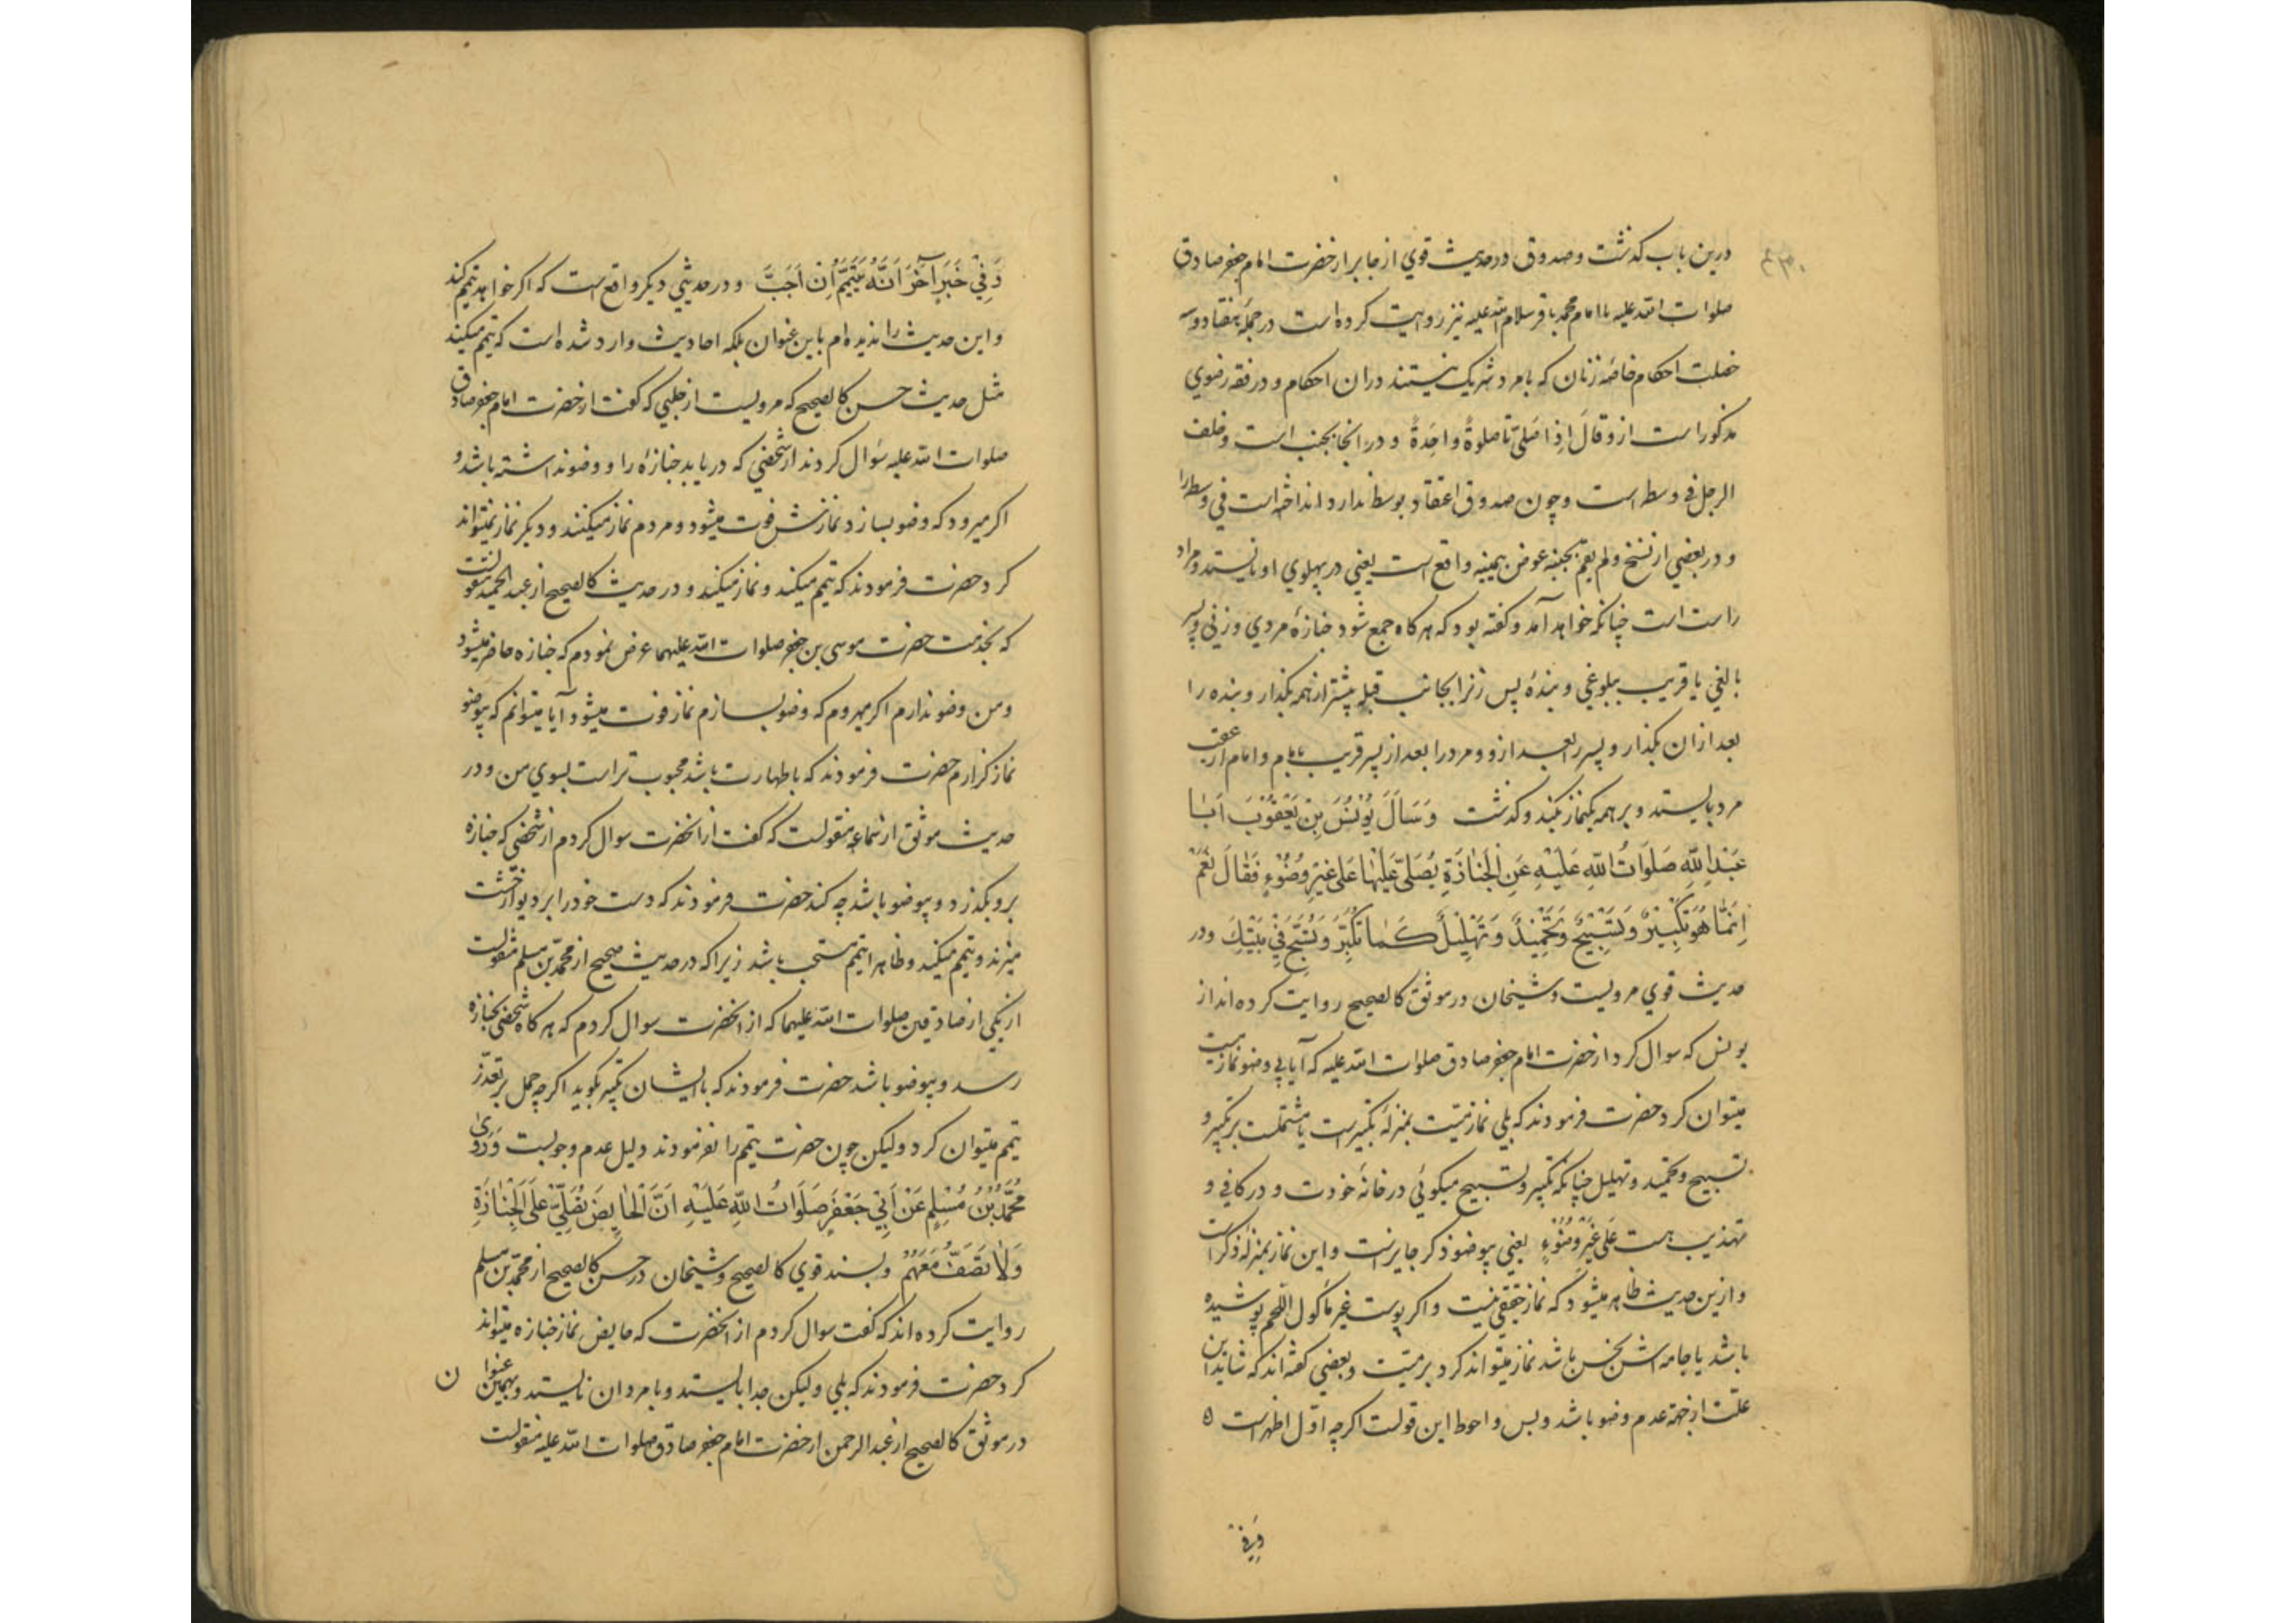 درین باب کذشت و صدوق در حدیث قوی از جابر از حضرت امام جعفر صادق
صلوات الله علیه یا امام محمد باقر سلام الله علیه نیز روایت کرده است در جمله هفتاد و سه
خصلت احکام خاصه زنان که با مرد شریک نیستند در ان احکام و در فقه رضوی
مذکور است ازو قال اذا صلی تا صلوةً واحدةً و در انجا بجنب است و خلف
الرجل فی وسطه است و چون صدوق اعتقاد بوسط ندارد انداخته است فی وسطه را
و در بعضی از نسخ ولم یقم بجنبه عوض یمینه واقع است یعنی در پهلوی او نایستد و مراد
راست است چنانکه خواهد آمد و کفته بود که هر کاه جمع شود جنازهٔ مردی و زنی و پسر
بالغی یا قریب ببلوغی و بندهٔ پس زنرا بجانب قبله پیشتر از همه بکذار و بنده را
بعد از ان بکذار و پسر را بعد ازو و مرد را بعد از پسر قریب بامام و امام در عقب
مرد بایستد و بر همه یکنماز بکند و کذشت وَسَاَلَ یُوْنُسُ بْنِ یَعْقُوْبَ اَبَا
عَبْدِاللّٰهِ صَلَوَاتُ اللّٰهِ عَلَیْهِ عَنِ الْجَنَازَةِ یُصَلّیٰ عَلَیْهَا عَلیٰ غَیْرِ وُضُوْءٍ فَقَالَ نَعَمْ
اِنَّمَا هُوَ تَکْبِیْرٌ وَتَسْبِیْحٌ وَتَحْمِیْدٌ وَتَهْلِیْلٌ کَمَا تُکَبِّرُ وَتُسَبِّحُ فِیْ بَیْتِكَ و در
حدیث قوی مرویست و شیخان در موثق کالصحیح روایت کرده اند از
یونس که سوال کرد از حضرت امام جعفر صادق صلوات الله علیه که آیا بی وضو نماز میت
میتوان کرد حضرت فرمودند که بلی نماز میّت بمنزلهٔ تکبیر است یا مشتملست بر تکبیر و
تسبیح و تحمید و تهلیل چنانکه تکبیر و تسبیح میکوئی در خانهٔ خودت و در کافی و
تهذیب هست عَلیٰ غَیْرِ وُضُوْءٍ یعنی بیوضو ذکر جایز است و این نماز بمنزله ذکر است
و ازین حدیث ظاهر میشود که نماز حقیقی نیست و اکر پوست غیر ماکول اللحم پوشیده
باشد یا جامه اش نجس باشد نماز میتواند کرد بر میّت و بعضی کفته اند که شاید این
علّت از جهة عدم وضو باشد و بس و احوط این قولست اکرچه اوّل اظهر است ه
وَفِیْ
وَفِیْ خَبَرٍ آخَرَ اَنَّهُ یَتَیَمَّمُ اِنْ اَحَبَّ و در حدیثی دیکر واقع است که اکر خواهد تیمم کند
و این حدیث را ندیده ام باین عنوان بلکه احادیث وارد شده است که تیمم میکند
مثل حدیث حسن کالصحیح که مرویست از حلبی که کفت از حضرت امام جعفر صادق
صلوات الله علیه سوال کردند از شخصی که دریابد جنازهٔ را و وضو نداشته باشد و
اکر میرود که وضو بسازد نمازش فوت میشود و مردم نماز میکنند و دیکر نماز نمیتواند
کرد حضرت فرمودند که تیمم میکند و نماز میکند و در حدیث کالصحیح از عبد الحمید منقولست
که بخدمت حضرت موسی بن جعفر صلوات الله علیهما عرض نمودم که جنازه حاضر میشود
و من وضو ندارم اکر میروم که وضو بسازم نماز فوت میشود آیا میتوانم که بیوضو
نماز کزارم حضرت فرمودند که با طهارت باشد محبوب تر است بسوی من و در
حدیث موثق از سماعه منقولست که کفت از انحضرت سوال کردم از شخصی که جنازه
برو بکذرد و بیوضو باشد چه کند حضرت فرمودند که دست خود را بر دیوار خشت
میزند و تیمم میکند و ظاهرا تیمم مستحب باشد زیرا که در حدیث صحیح از محمّد بن مسلم منقولست
از یکی از صادقین صلوات الله علیهما که از انحضرت سوال کردم که هر کاه شخصی بجنازه
رسد و بیوضو باشد حضرت فرمودند که با ایشان تکبیر بکوید اکرچه حمل بر تعذّر
تیمم میتوان کرد ولیکن چون حضرت تیمم را نفرمودند دلیل عدم وجوبست وَرَوٰی
مُحَمَّدُ بْنُ مُسْلِمٍ عَنْ اَبِیْ جَعْفَرٍ صَلَوَاتُ اللّٰهِ عَلَیْهِ اَنَّ الْحَایِضَ تُصَلِّیْ عَلَی الْجَنَازَةِ
وَلَا تَصَفُّ مَعَهُمْ و بسند قوی کالصحیح و شیخان در حسن کالصحیح از محمّد بن مسلم
روایت کرده اند که کفت سوال کردم از انحضرت که حایض نماز جنازه میتواند
کرد حضرت فرمودند که بلی ولیکن جدا بایستد و با مردان نایستد و بهمین عنوان
در موثق کالصحیح از عبد الرحمن از حضرت امام جعفر صادق صلوات الله علیه منقولست